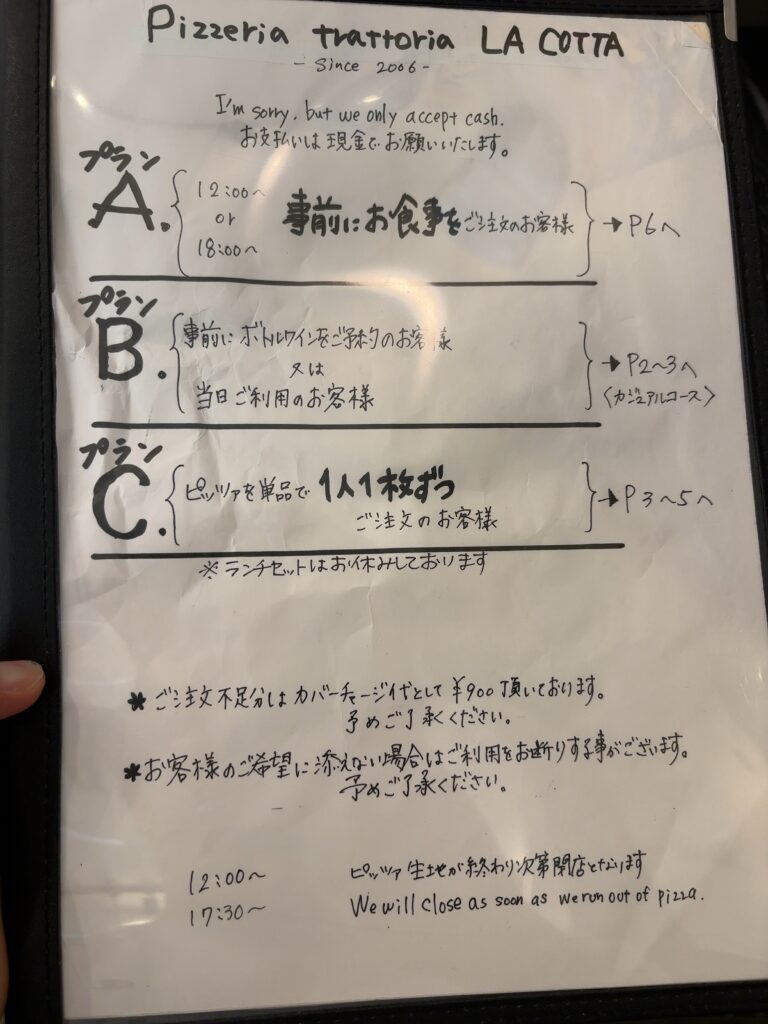 Pizzeria trattoria LA COTTA
- Since 2006 -
I'm sorry, but we only accept cash.
お支払いは現金でお願いいたします。
プラン
A.
12:00〜
or
18:00〜
事前にお食事をご注文のお客様
→P6へ
プラン
B.
事前にボトルワインをご予約のお客様
又は
当日ご利用のお客様
→P2〜3へ
〈カジュアルコース〉
プラン
C.
ピッツァを単品で1人1枚ずつ
ご注文のお客様
→P3〜5へ
※ランチセットはお休みしております
*ご注文不足分はカバーチャージ代として¥900頂いております。
予めご了承ください。
*お客様のご希望に添えない場合はご利用をお断りする事がございます。
予めご了承ください。
12:00〜 ピッツァ生地が終わり次第閉店となります
17:30〜 We will close as soon as we run out of pizza.